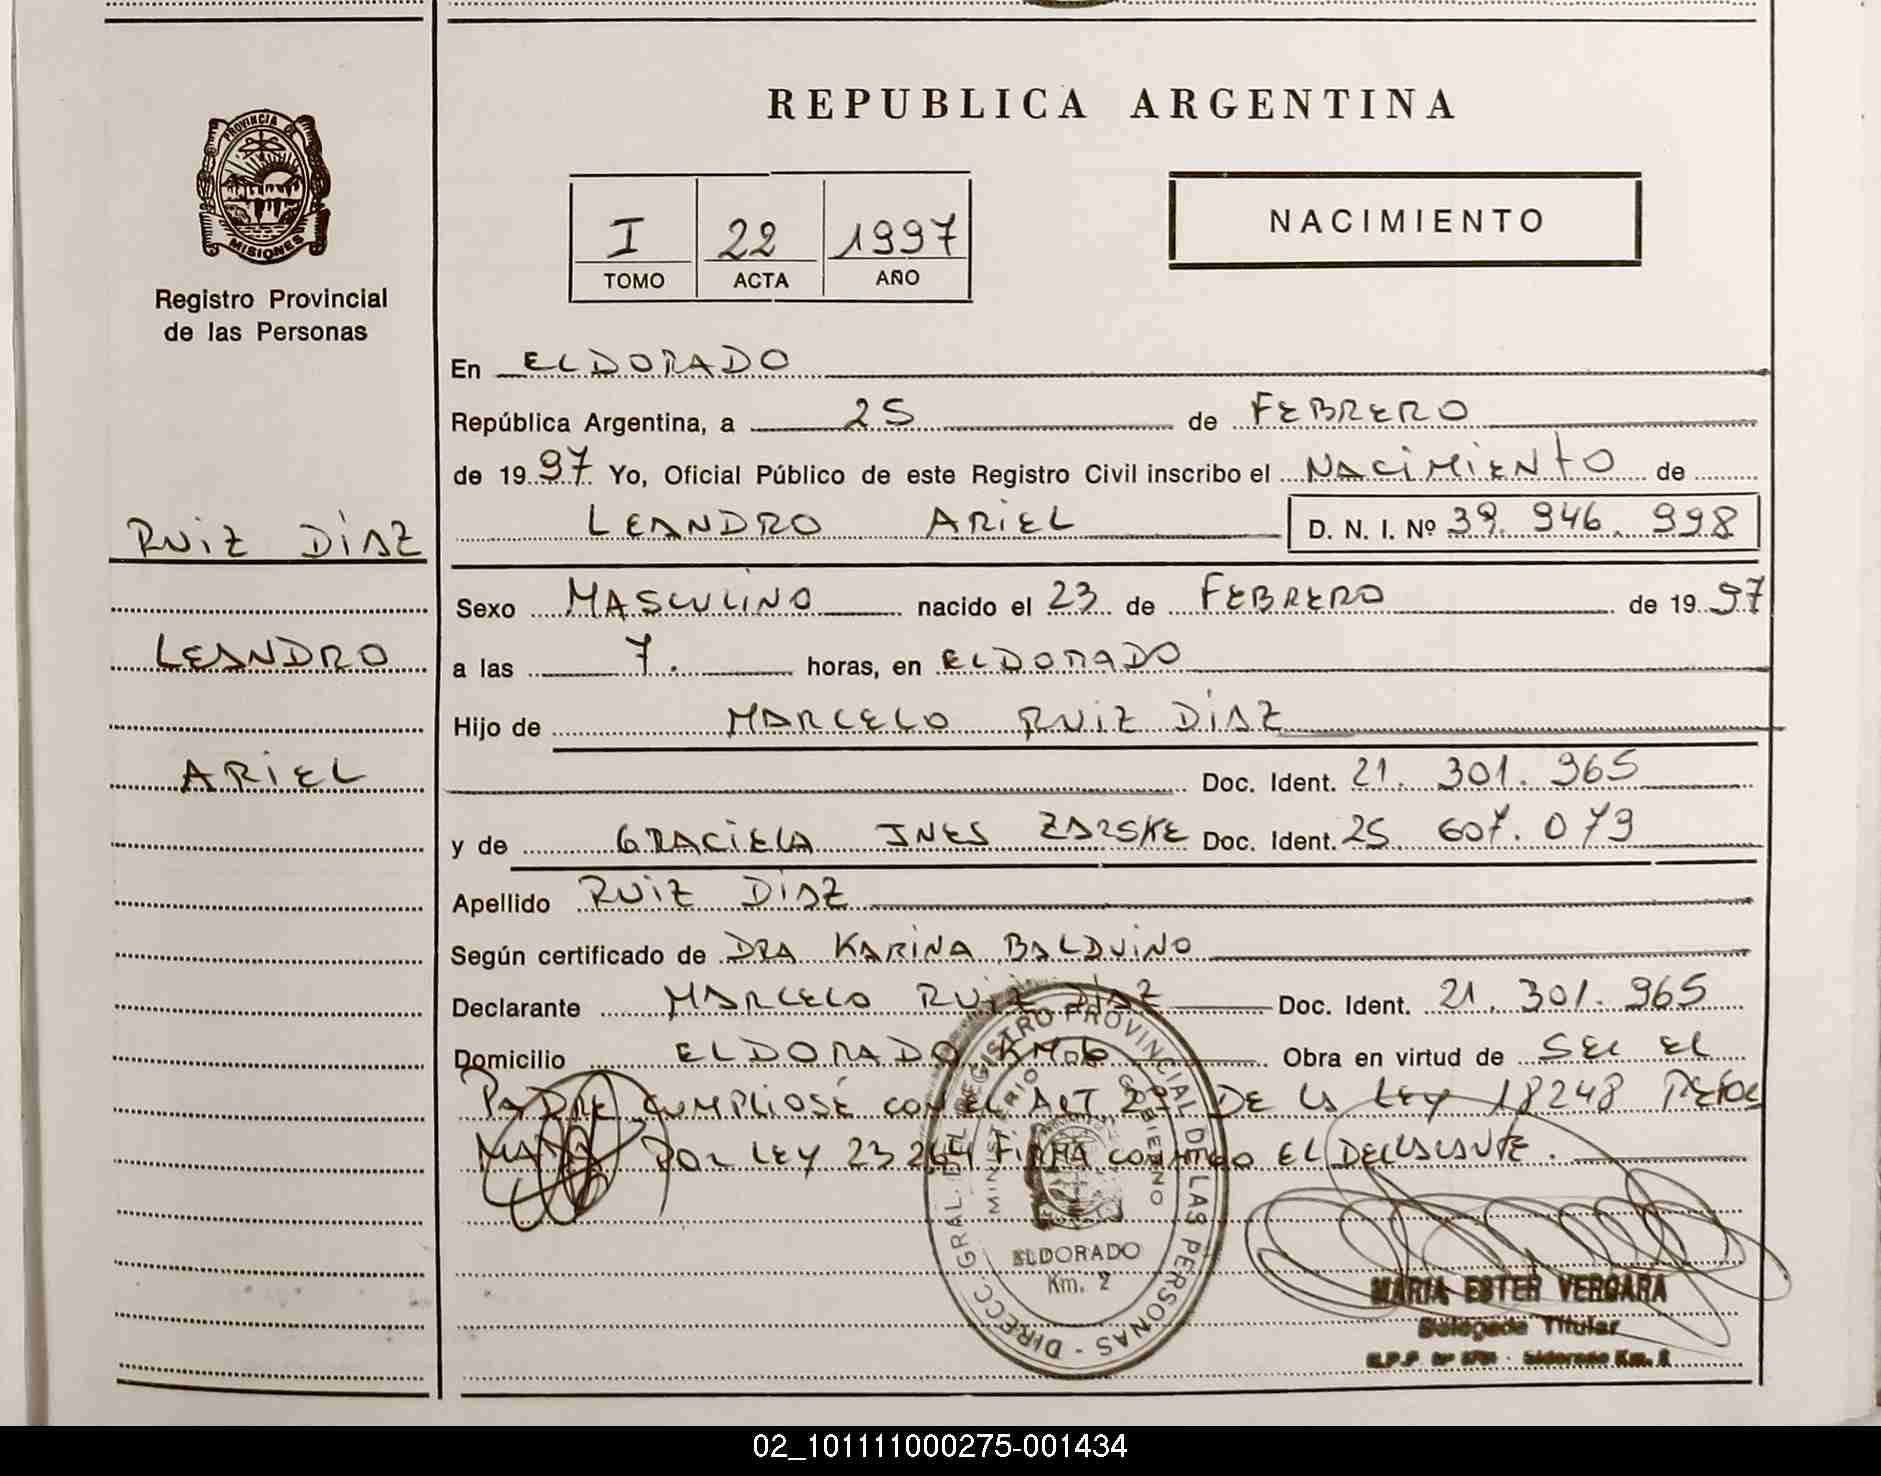 REPUBLICA ARGENTINA
PROVINCIA DE
MISIONES
Registro Provincial
de las Personas
I 22 1997
TOMO ACTA AÑO
NACIMIENTO
RUIZ DIAZ
LEANDRO
ARIEL
En ELDORADO
República Argentina, a 25 de FEBRERO
de 1997 Yo, Oficial Público de este Registro Civil inscribo el NACIMIENTO de
LEANDRO ARIEL D. N. I. Nº 39.946.998
Sexo MASCULINO nacido el 23 de FEBRERO de 1997
a las 7. horas, en ELDORADO
Hijo de MARCELO RUIZ DIAZ
Doc. Ident. 21.301.965
y de GRACIELA INES ZARSKE Doc. Ident. 25 607.079
Apellido RUIZ DIAZ
Según certificado de DRA KARINA BALDUINO
Declarante MARCELO RUIZ DIAZ Doc. Ident. 21.301.965
Domicilio ELDORADO KM.6 Obra en virtud de SER EL
PADRE CUMPLIOSE CON EL ART 2º DE LA LEY 18248 REFOR
MADA POR LEY 23264 FIRMA CONMIGO EL DECLARANTE.
DIRECC. GRAL. DEL REGISTRO PROVINCIAL DE LAS PERSONAS
MINISTERIO GOBIERNO
ELDORADO
Km. 2
MARIA ESTER VERGARA
Delegada Titular
Eldorado Km. 2
02_101111000275-001434